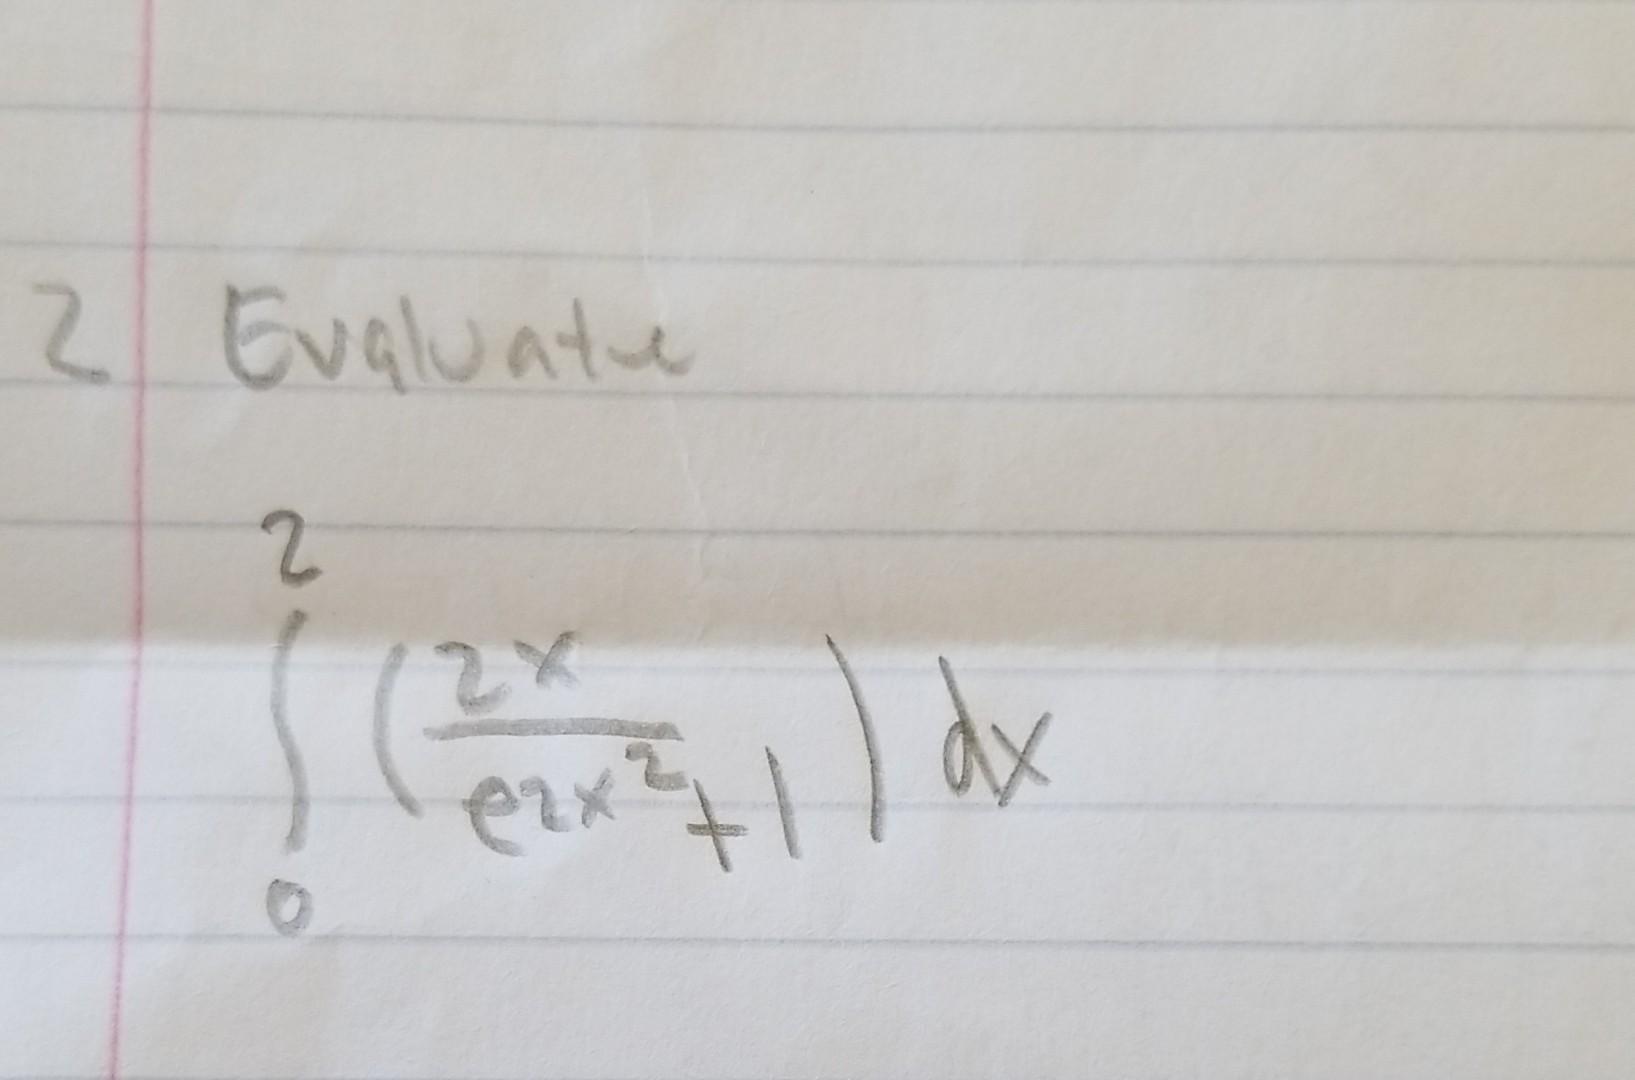 2 Evaluate
∫₀² (2x / e^{2x²} + 1) dx